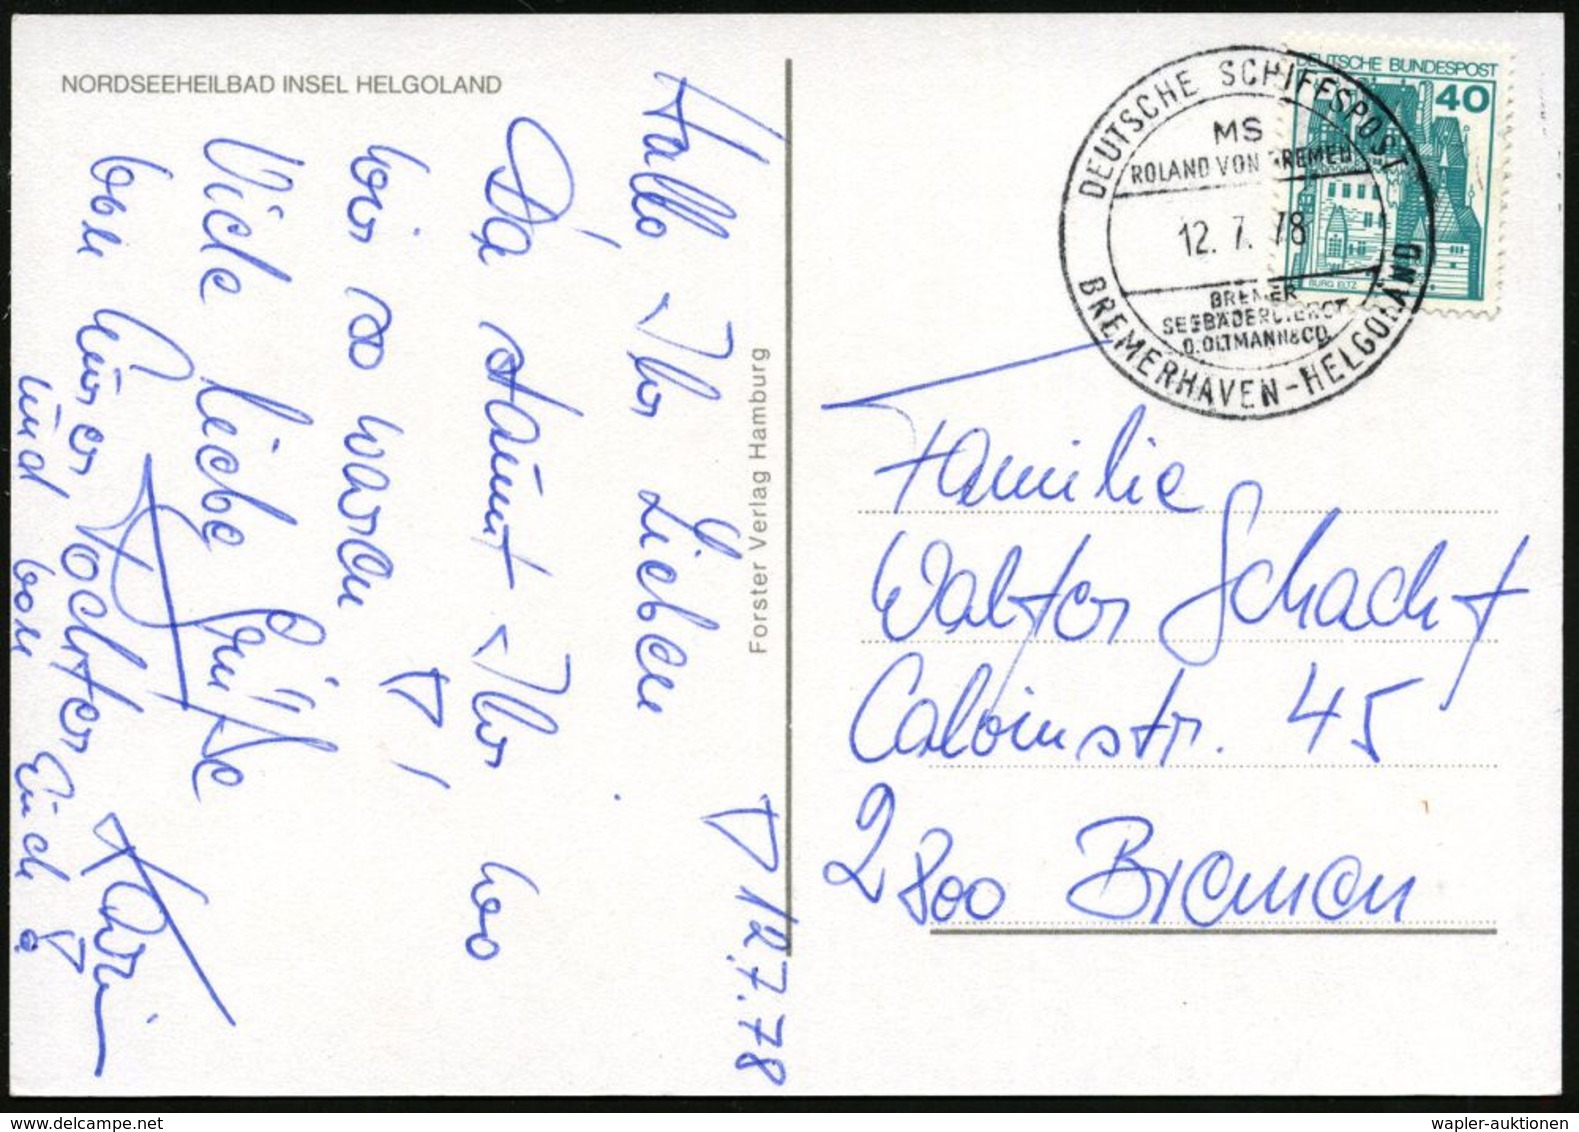 NORDSEEHEILBAD INSEL HELGOLAND
12.7.78
Hallo Ihr Lieben
Da staunt Ihr wo
wir so waren!
Viele liebe Grüße
von Eurer Tochter
und von
Forster Verlag Hamburg
DEUTSCHE SCHIFFSPOST
MS
ROLAND VON BREMEN
12. 7. 78
BREMER
SEEBÄDERDIENST
O.OLTMANN&CO.
BREMERHAVEN-HELGOLAND
DEUTSCHE BUNDESPOST
40
BURG ELTZ
Familie
Walter Schacht
Calvinstr. 45
2800 Bremen
wapler-auktionen